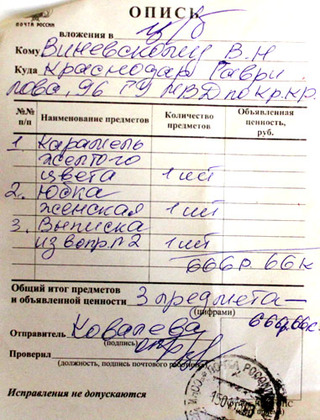 ПОЧТА РОССИИ
ОПИСЬ
вложения в ц/б
Кому Виневскому В.Н
Куда Краснодар Гаври
лова, 96 ГУ МВД по Кр.кр.
№№ п/п Наименование предметов Количество предметов Объявленная ценность, руб.
1. Карамель
желтого
цвета 1 шт
2. Юбка
женская 1 шт
3. Выписка
из вопр №2 1 шт
666р 66к
Общий итог предметов
и объявленной ценности 3 предмета —
(цифрами)
Отправитель Ковалева
(подпись)
Проверил
(должность, подпись почтового
Исправления не допускаются
ПОЧТА РОССИИ